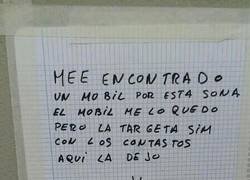 MEE ENCONTRADO
UN MOBIL POR ESTA SONA
EL MOBIL ME LO QUEDO
PERO LA TARGETA SIM
CON LOS CONTASTOS
AQUI LA DEJO